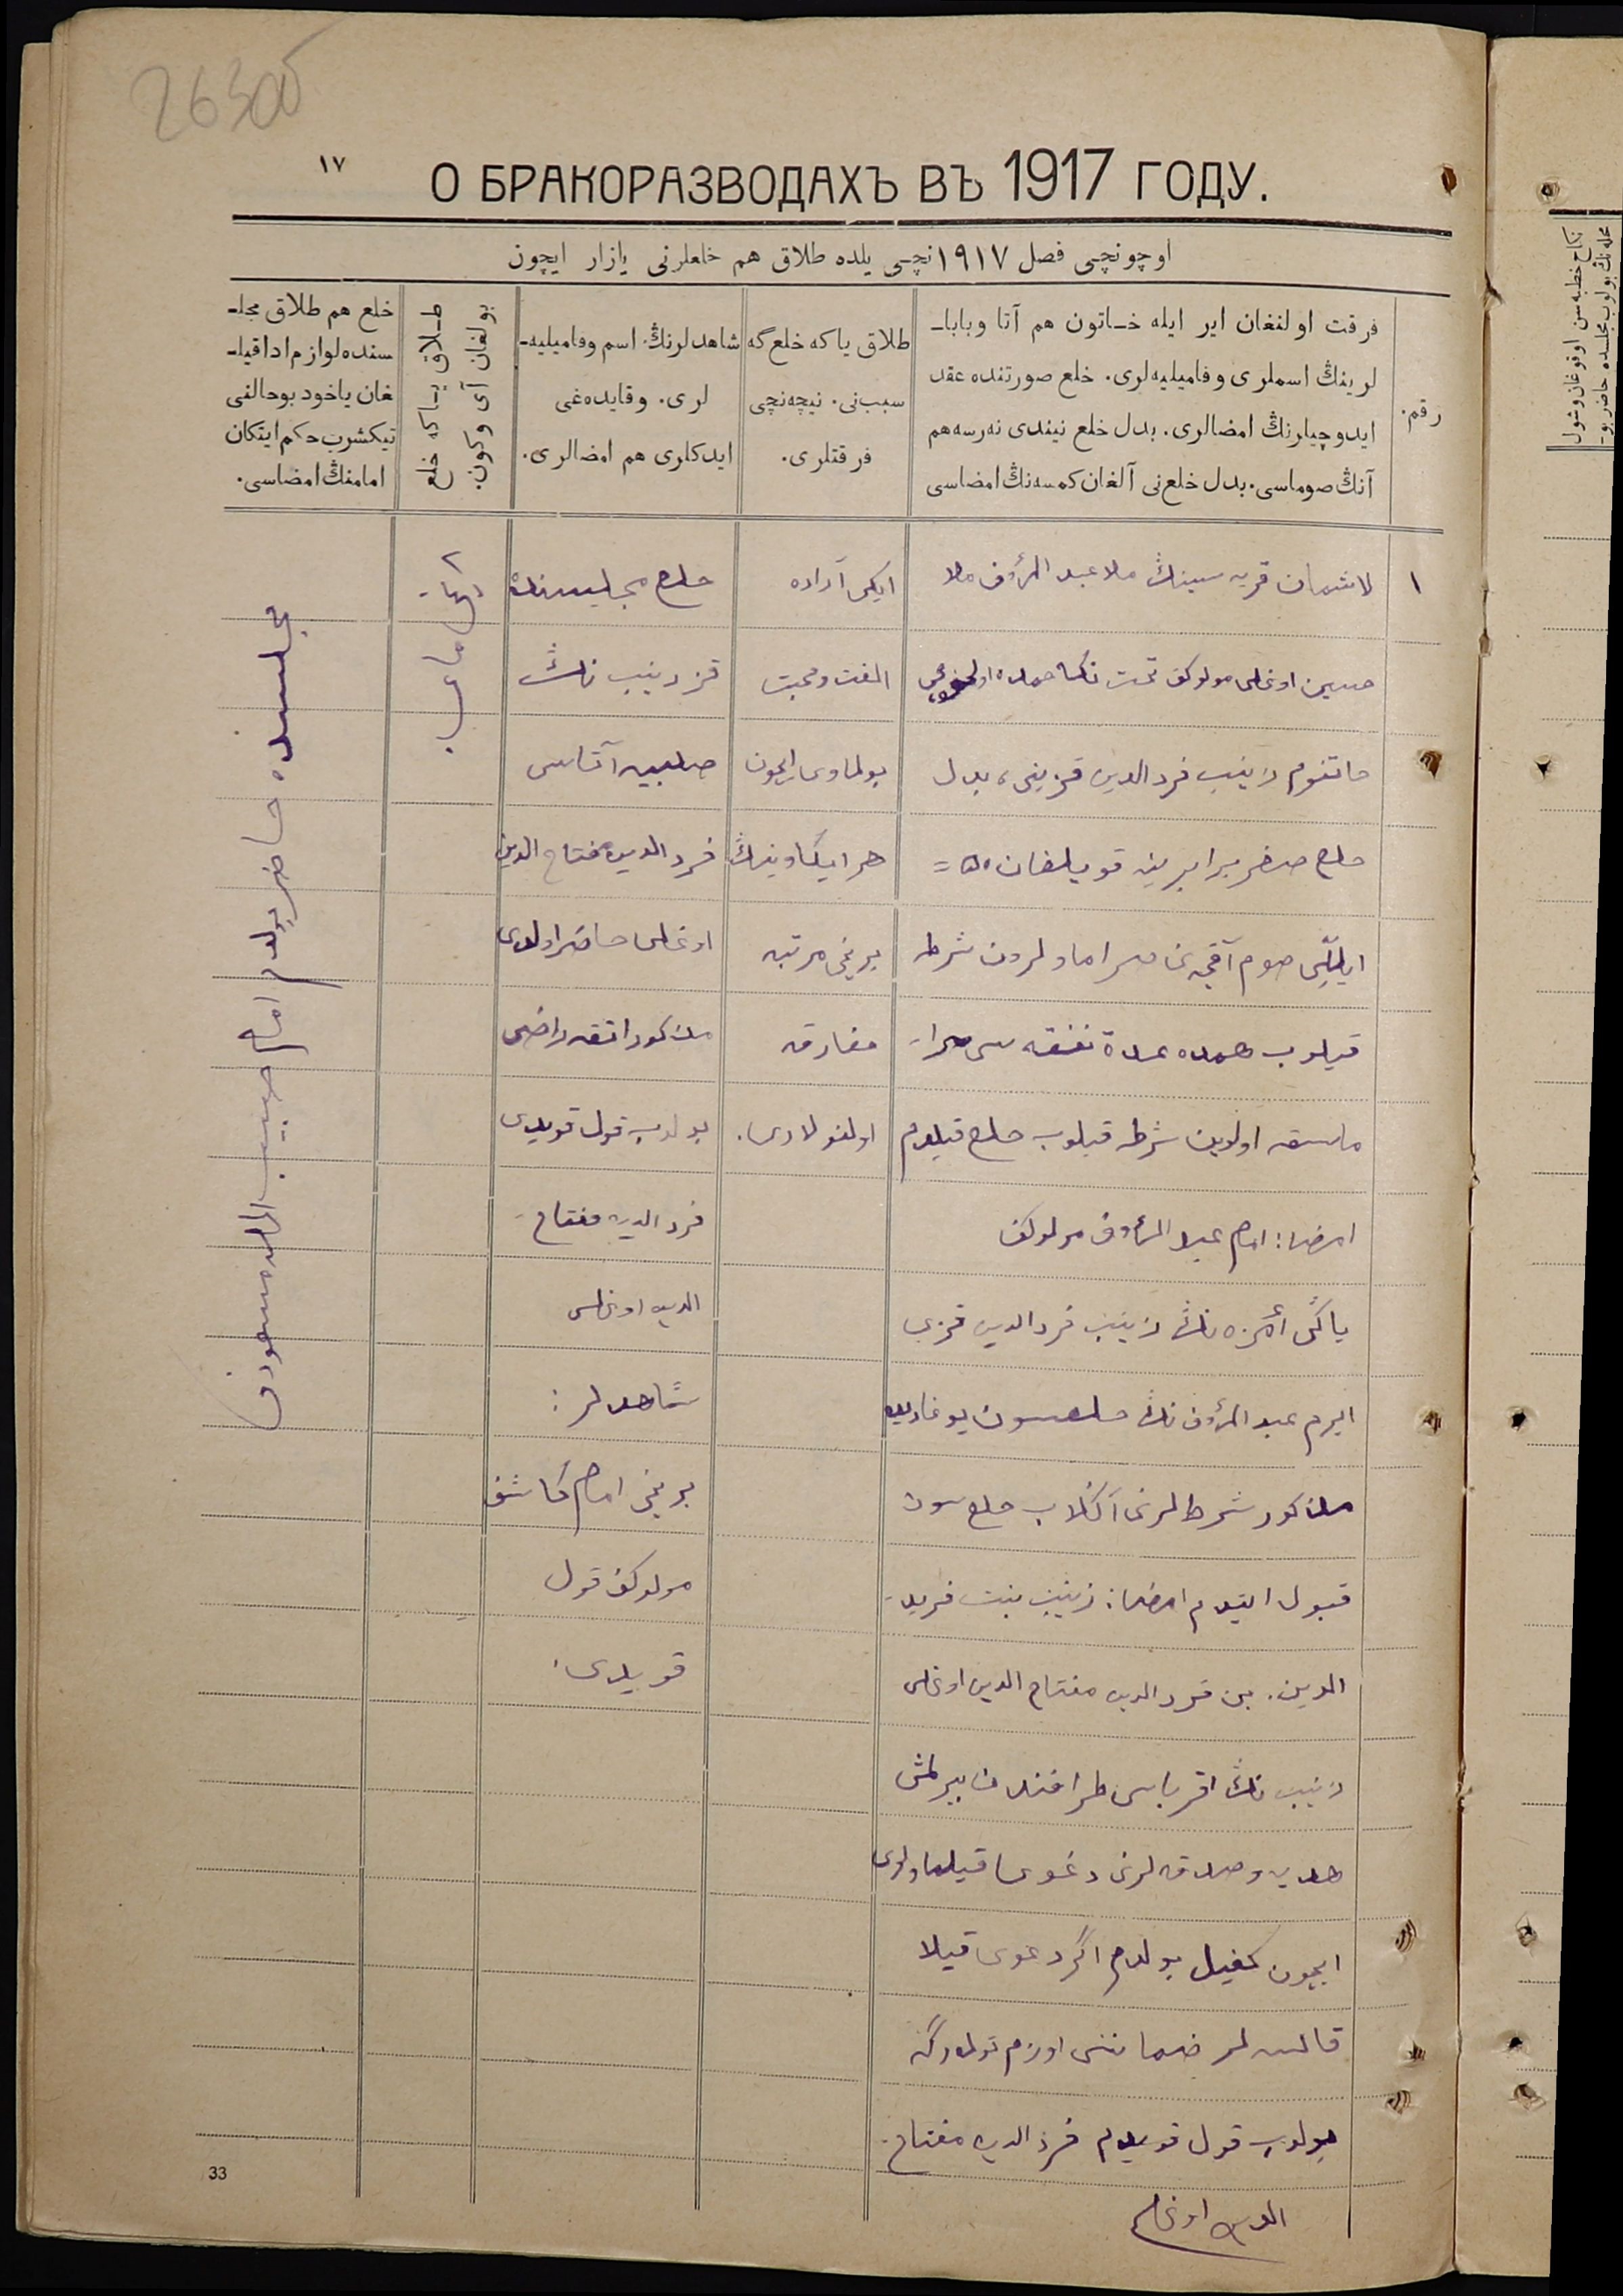 26300
١٧
О БРАКОРАЗВОДАХЪ ВЪ 1917 ГОДУ.
اوچونچی فصل ١٩١٧نچی یلده طلاق هم خلعلرنی یازار ایچون
رقم.
فرقت اولنغان ایر ایله خـاتون هم آتا وباباـ
لرینڭ اسملری وفامیلیه‌لری. خلع صورتنده عقد
ایدوچیلرنڭ امضالری. بدل خلع نیندی نه‌رسه هم
آنڭ صوماسی. بدل خلع‌نی آلغان کمسه‌نڭ امضاسی
طلاق یا که خلع گه
سبب‌نی. نیچه‌نچی
فرقتلری.
شاهدلرنڭ اسم وفامیلیه‌ـ
لری. وقایده‌غی
ایدکلری هم امضالری.
طـلاق یـاکه خلع
بولغان آی وکون.
خلع هم طلاق مجلـ
سنده لوازم ادا قیلـ
غان یاخود بوحالنی
تیکشرب حکم ایتکان
امامنڭ امضاسی.
١
لاشمان قریه سینڭ ملا عبد الرؤف ملا
حسین اوغلی مولوکف تحت نکاحمده
خاتنوم زینب فرد الدین قزینی، بدل
خلع صفر برابرینه قویلغان ٥٠ =
ایللی صوم آقچه‌نی شرط
قیلوب همده عدة نفقه سی
شرط قیلوب خلع قیلدم
امضا: امام عبد الرؤف مولوکف
زینب فرد الدین قزی
ایرم عبد الرؤف نڭ خلعسون یوغاریده
مذکور شرطلرنی آڭلاب خلع سون
قبول ایتدم امضا: زینب بنت فرید
الدین. بن فرد الدین مفتاح الدین اوغلی
زینب نڭ اقرباسی طرافندان بیرلمش
هدیه وصدقه لرنی دعوی قیلماولری
ایچون کفیل بولدم اگر دعوی قیلا
قالسه لر ضماننی اوزم تولارگه
بولوب قول قویدم فرد الدین مفتاح
الدین اوغلی
ایکی آراده
الفت ومحبت
بولماوی ایچون
هر ایکاوینڭ
برنجی مرتبه
مفارقه
اولنولاری.
خلع مجلیسنده
قز زینب نڭ
صلبیه آتاسی
فرد الدین مفتاح الدین
اوغلی حاضر اولدی
مذکور اتفه راضی
بولوب قول قویدی
فرد الدین مفتاح
الدین اوغلی
شاهدلر:
برنجی امام کاشف
مولوکف قول
قویدی.
مجلسنده حاضر بولدم امام حبیب الله مسعودف
33
نکاح خطبه سن اوقوغان وشول